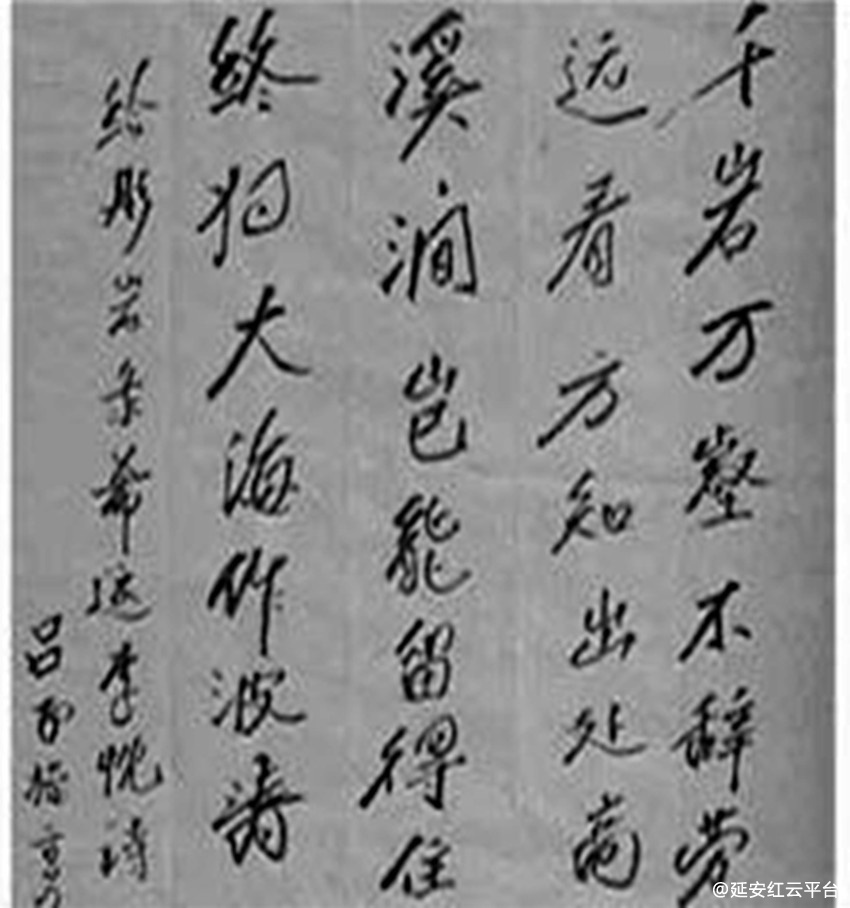 千岩万壑不辞劳
远看方知出处高
溪涧岂能留得住
终归大海作波涛
岩 李忱诗
吕
@延安红云平台